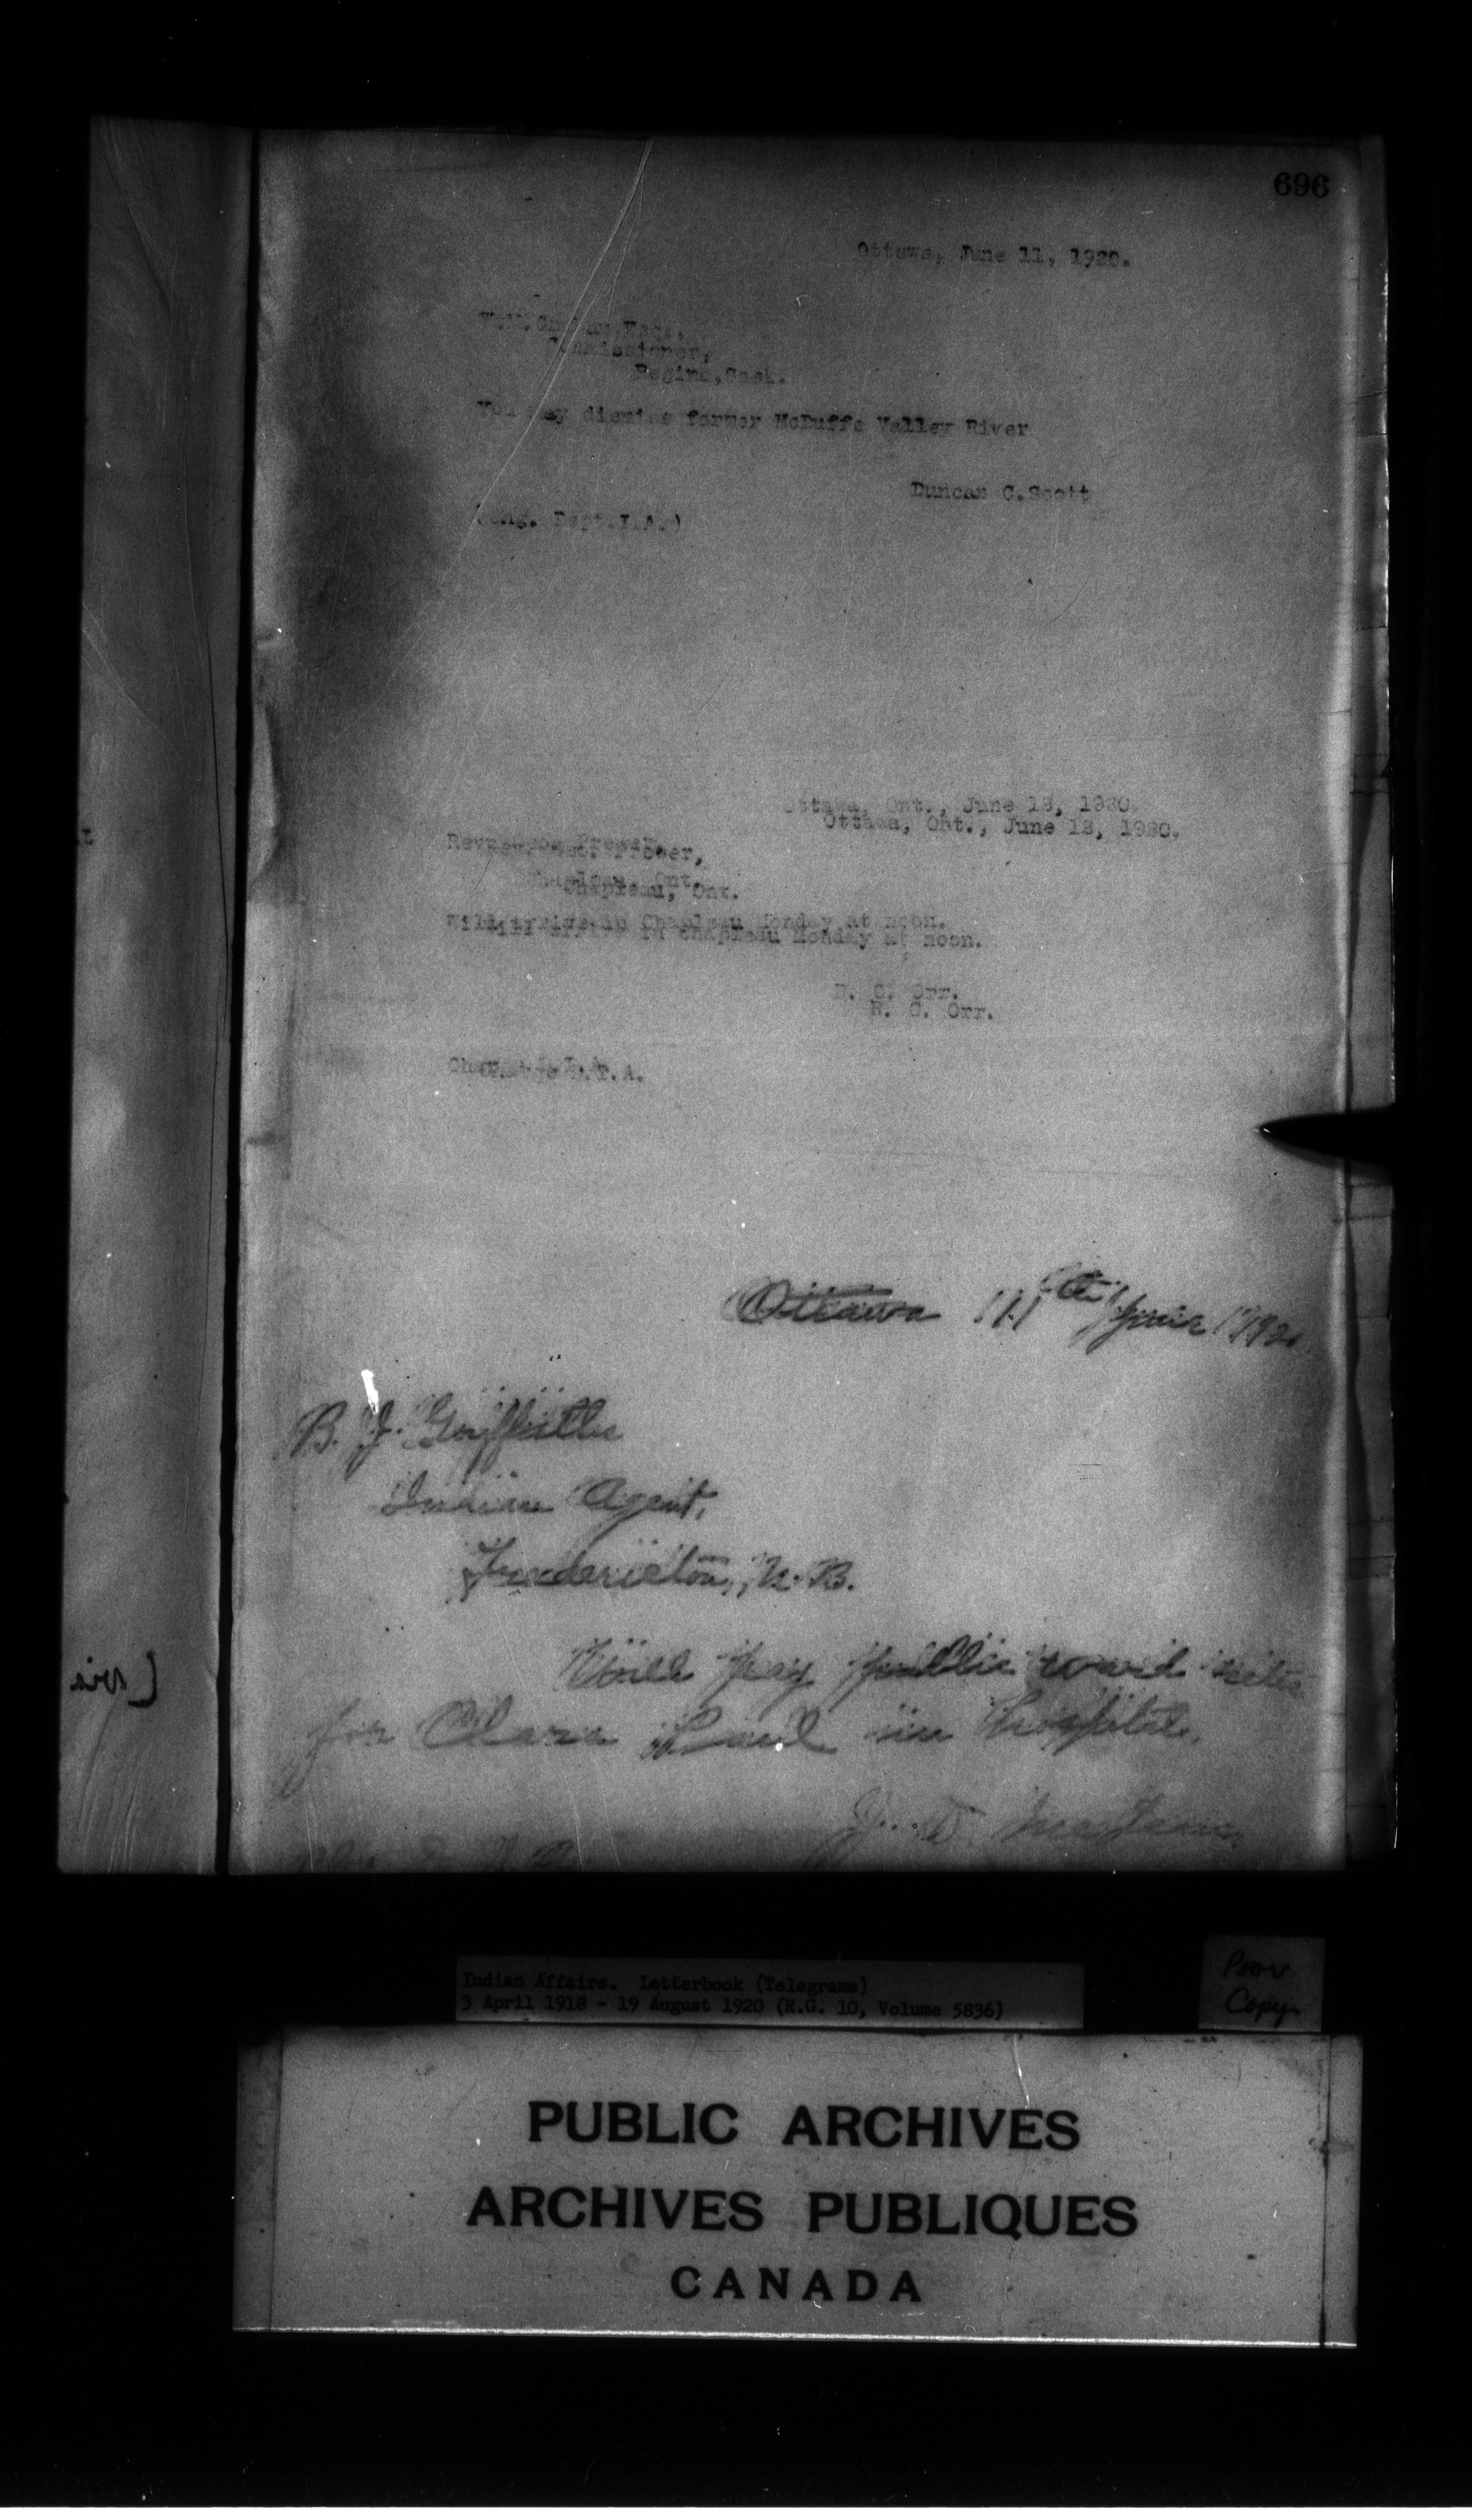 696
Ottawa, June 11, 1920.
W.M.Graham Esqr.
Commissioner,
Regina,Sask.
You may dismiss farmer McDuffe Valley River
Duncan C.Scott
(Chg. Dept.I.A.)
Ottawa, Ont., June 12, 1920.
Ottawa, Ont., June 12, 1920.
Rev. Geo. Prewer,
Chapleau, Ont.
Will arrive in Chapleau Monday at noon.
Will arrive in Chapleau Monday at noon.
R. C. Orr.
R. C. Orr.
Charge D.I.A.
Ottawa 11th June 1920
B. J. Griffiths
Indian Agent,
Fredericton, N. B.
Will pay public ward rates
for Clara Paul in hospital.
J. D. McLean
Indian Affairs. Letterbook (Telegrams)
3 April 1918 - 19 August 1920 (R.G. 10, Volume 5836)
Poor
Copy
PUBLIC ARCHIVES
ARCHIVES PUBLIQUES
CANADA